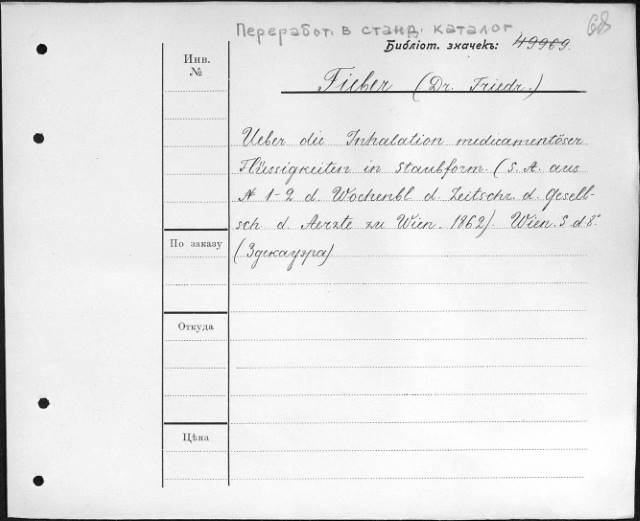 Переработ. в станд. каталог
68
Библіот. значекъ: 49969.
Инв. №
Fieber (Dr. Friedr.)
Ueber die Inhalation medicamentöser
Flüssigkeiten in Staubform. (S. A. aus
№ 1-2 d. Wochenbl. d. Zeitschr. d. Gesell-
sch. d. Aerzte zu Wien. 1862). Wien. S. d. 8°
(Здекауэра)
По заказу
Откуда
Цѣна